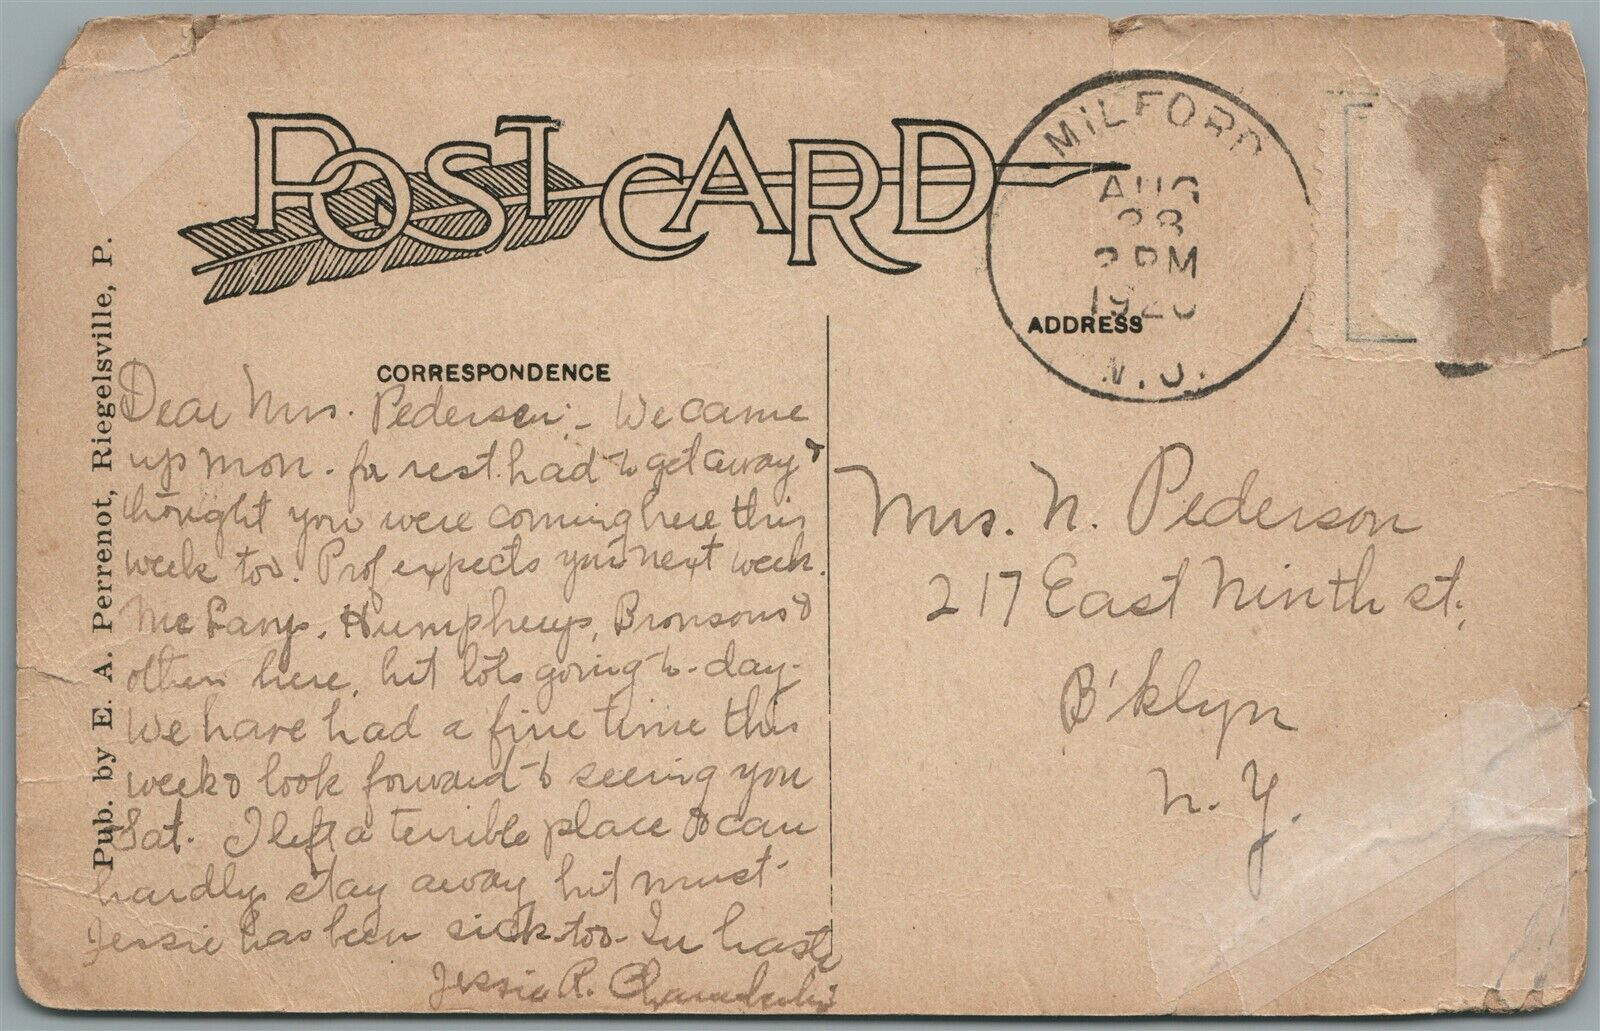 POST CARD
MILFORD
AUG
28
PM
192
N.J.
ADDRESS
CORRESPONDENCE
Pub. by E. A. Perrenot, Riegelsville, P.
Dear Mrs. Pedersen:- We came
up mon. for rest. had to get away &
thought you were coming here this
week too. Prof expects you next week.
Humphreys, Bronsons &
others here, but lots going to-day-
We have had a fine time this
week & look forward to seeing you
Sat. I left a terrible place & can
hardly stay away but must-
Jessie has been sick too- In haste
Jessie R.
Mrs. N. Pederson
217 East Ninth st.
B'klyn
N.Y.